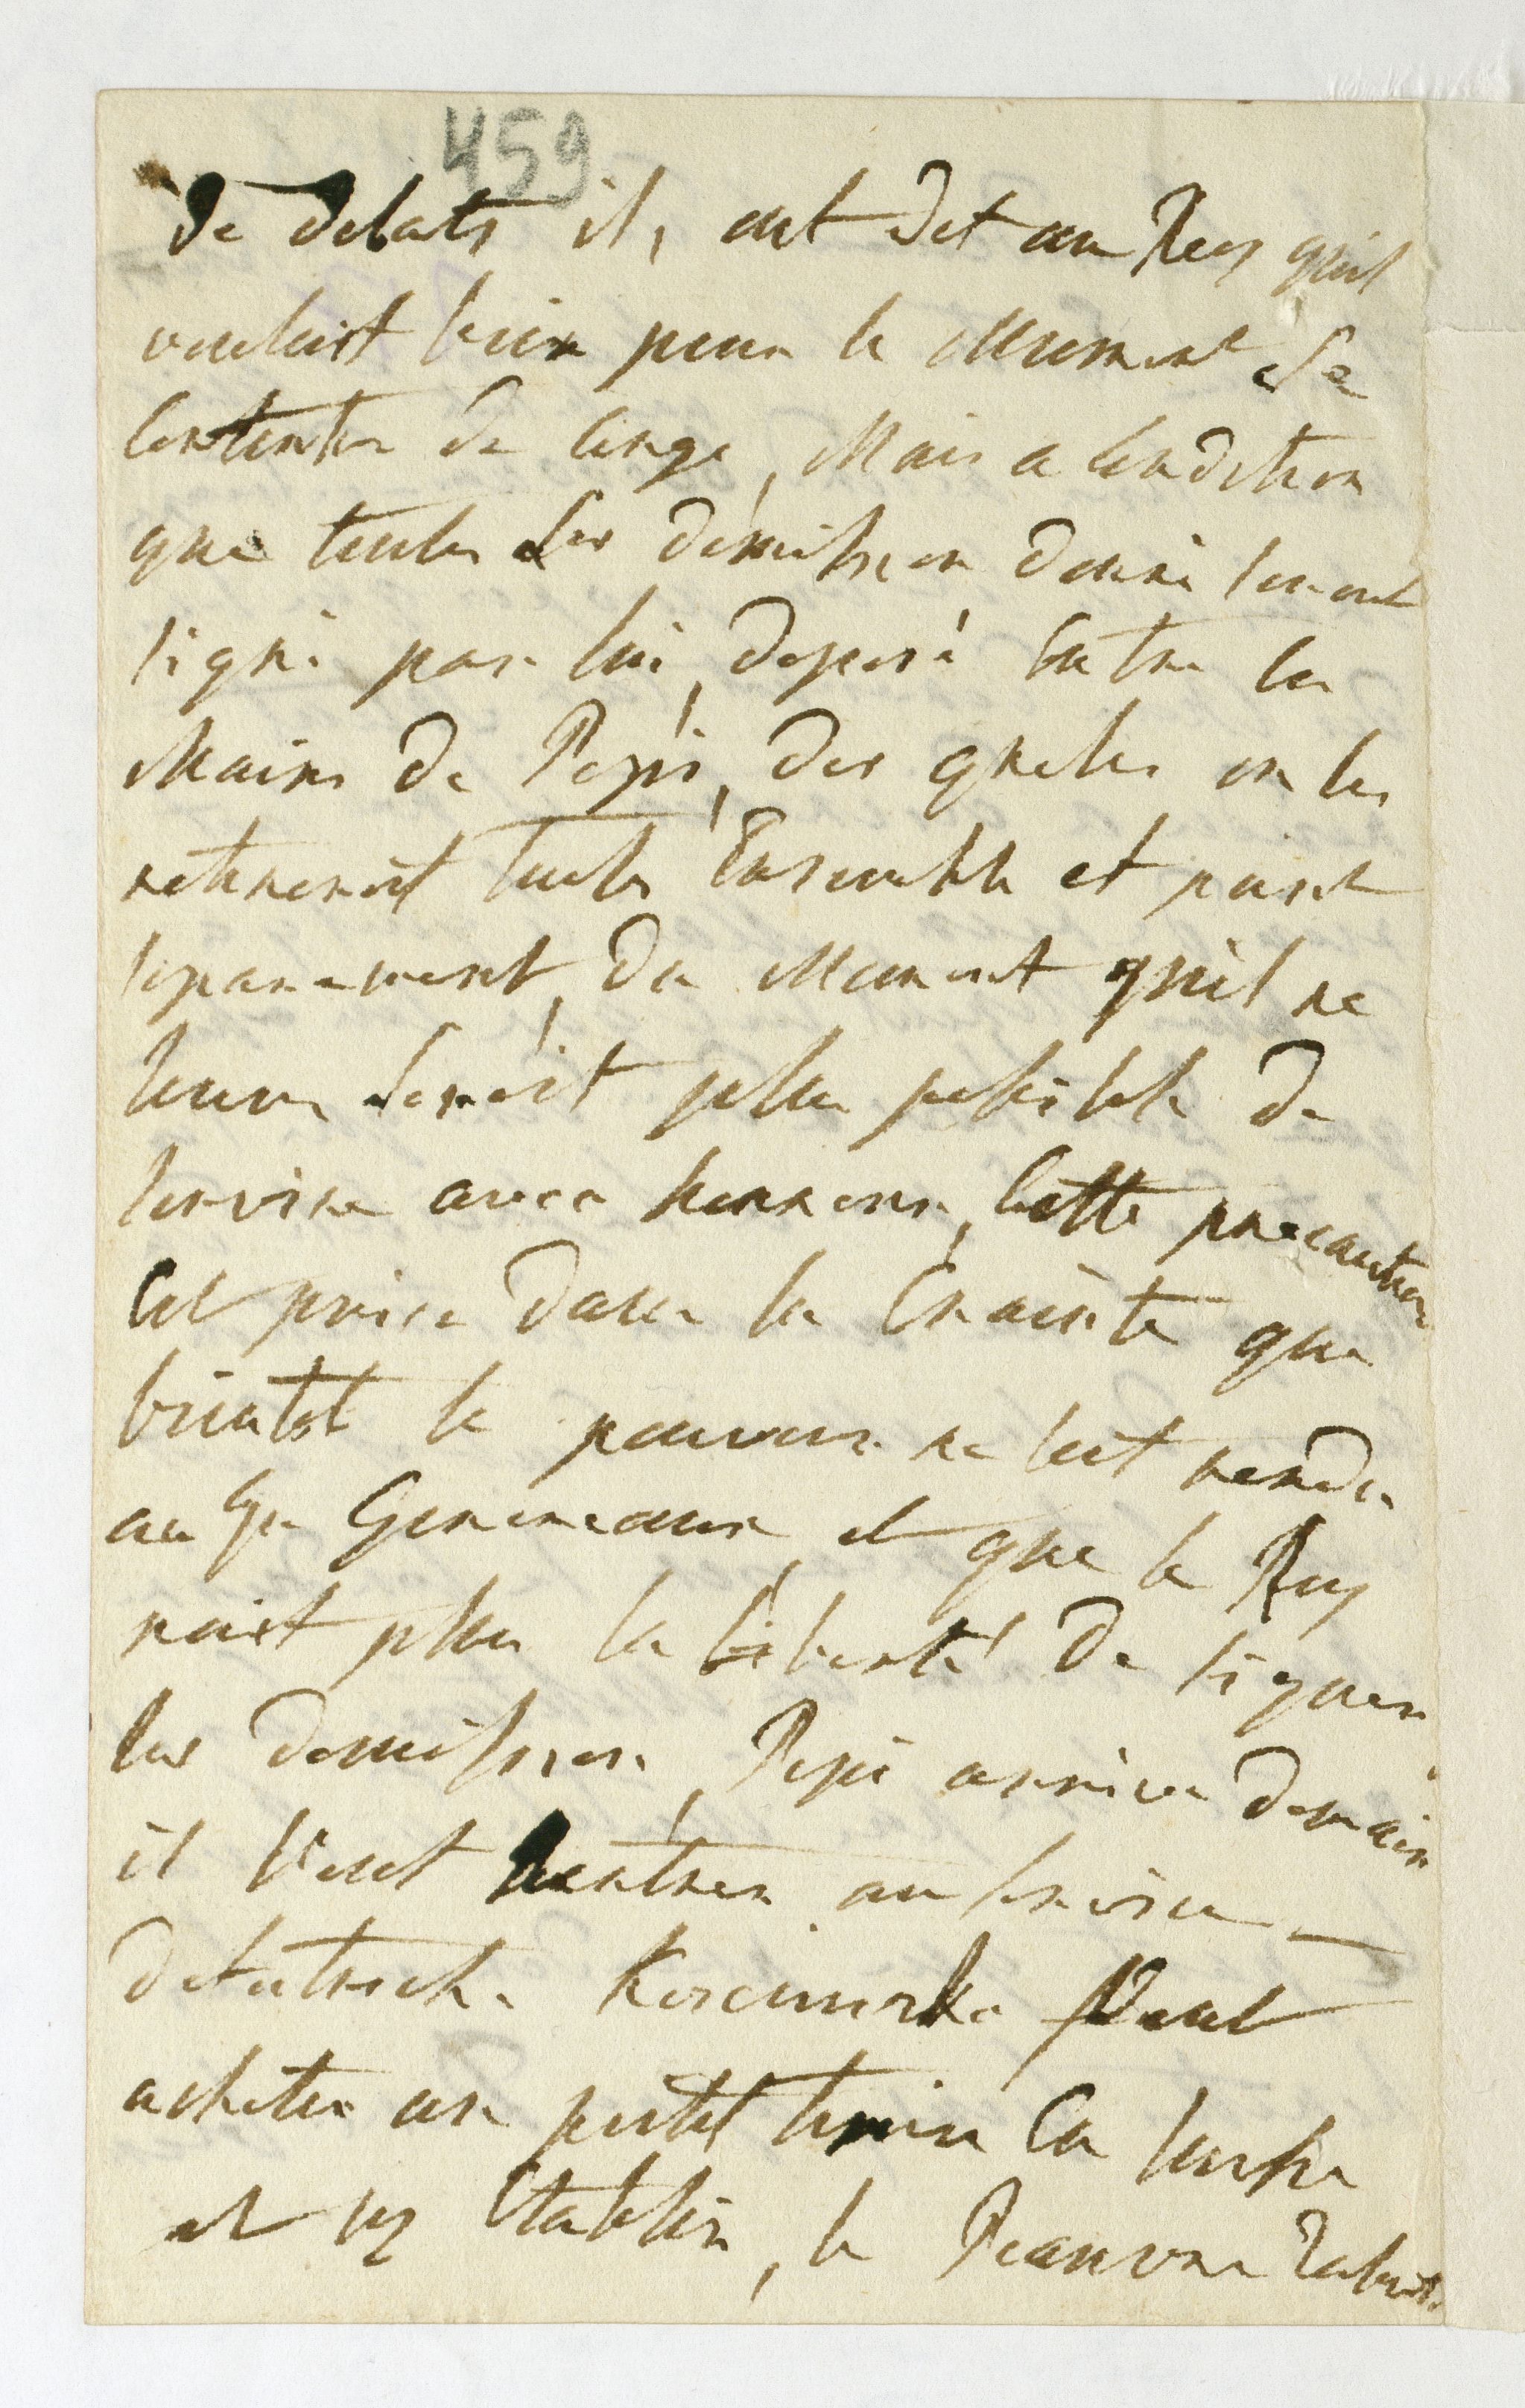 459
de debats ils ont dit au Roy quil
vouloist bien pour le Moment se
Contenter de Congé, Mais a Condition
que toutes Les démission donné seront
signé par lui, deposé Entre les
Mains de Pepi, des queles on les
retireroit toutes Ensemble et point
separement, du Moment quil ne
leur seroit plus possible de
servire avec honneur, Cette precaution
Est prise dans la Crainte que
bientot le pouvoir ne soit rendu
au Generaux, et que le Roy
nait plus la Liberté de signer
les demission, Pepi arrive demain
il Veut Rentrer au service
dautriche Veut
acheter un petit en Russie
et sy Etablir, le Peauvre